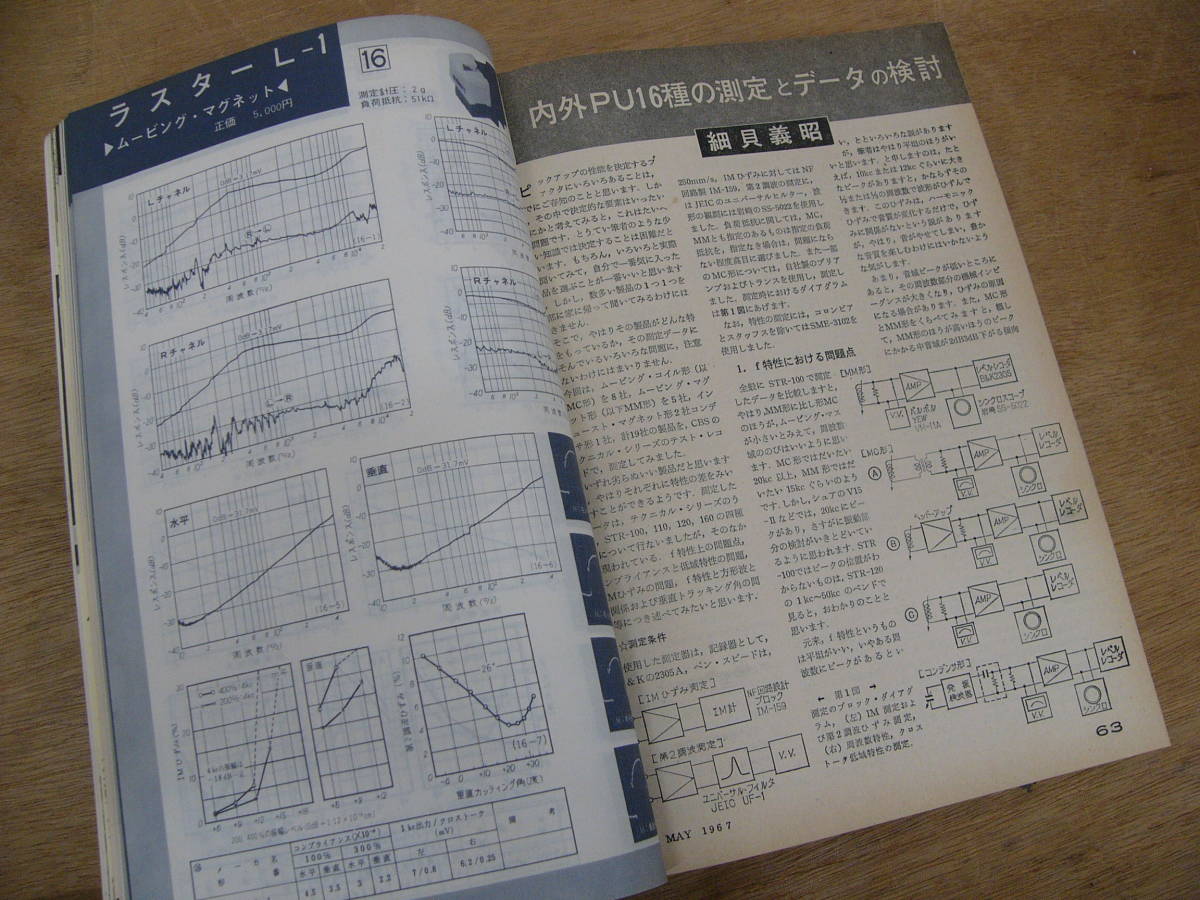 ラスターL-1
▶ムービング・マグネット◀
正価 5,000円
16
測定針圧:2g
負荷抵抗:51kΩ
Lチャネル
0dB=3.17mV
レスポンス(dB)
周波数(c/s)
(16-1)
Rチャネル
レスポンス(dB)
L→R
周波数(c/s)
(16-2)
Lチャネル
レスポンス(dB)
Rチャネル
レスポンス(dB)
水平
0dB=31.7mV
レスポンス(dB)
周波数(c/s)
(16-5)
垂直
0dB=31.7mV
レスポンス(dB)
周波数(c/s)
(16-6)
400% 4kc
200%
IMひずみ(%)
+6 +9 +12
垂直
+6 +9 +12
第2調波ひずみ(%)
26°
(16-7)
垂直カッティング角(度)
コンプライアンス(×10⁻⁶)
100% 300%
水平 垂直 水平 垂直
1kc出力/クロストーク
(mV)
左 右
備考
メーカ名
形番
4.5 3.5 3 2.2
7/0.8 6.2/0.25
内外PU16種の測定とデータの検討
細貝義昭
ピックアップの性能を決定するフ
ァクタにいろいろあることは,
でにご存知のことと思います. しか
その中で決定的な要素はいったい
にかと考えてみると, これはたいへ
問題です. とうてい筆者のような少
い知識では決定することは困難だと
います. もちろん, いろいろと実際
聞いてみて, 自分で一番気に入った
品を選ぶことが一番いいと思います
しかし, 数多い製品の1つ1つを
部に家に帰って聞いてみるわけには
きません.
そこで, やはりその製品がどんな特
をもっているか, その測定データに
そんでいるいろいろな問題に, 注意
ないわけにはまいりません.
今回は, ムービング・コイル形(以
MC形)を8社, ムービング・マグ
ット形(以下MM形)を5社, イン
ュースト・マグネット形2社コンデ
サ形1社, 計19社の製品を, CBSの
クニカル・シリーズのテスト・レコ
ドで, 測定してみました.
いずれ劣らぬいい製品だと思います
やはりそれぞれに特性の差をみい
すことができるようです. 測定した
ータは, テクニカル・シリーズのう
STR-100, 110, 120, 160の四種
について行ないましたが, そのなか
現われている. f特性上の問題点,
ンプライアンスと低域特性の問題,
Mひずみの問題, f特性と方形波と
関係および垂直トラッキング角の問
等につき述べてみたいと思います.
☆測定条件
使用した測定器は, 記録器として,
&Kの2305A, ペン・スピードは,
250mm/s, IMひずみに対してはNF
回路製IM-159, 第2調波の測定に,
はJEICのユニバーサルヒルター, 波
形の観測には岩崎のSS-5022を使用し
ました. 負荷抵抗に関しては, MC,
MMとも指定のあるものは指定の負荷
抵抗を, 指定なき場合は, 問題になら
ない程度高目に選びました. また一部
のMC形については, 自社製のプリア
ンプおよびトランスを使用し, 測定し
ました. 測定時におけるダイアグラム
は第1図にあげます.
なお, 特性の測定には, コロンビア
とスタッフスを除いてはSME-3102を
使用しました.
1. f特性における問題点
全般にSTR-100で測定
したデータを比較しますと,
やはり, MM形に比し形MC
のほうが, ムービング・マス
が小さいとみえて, 周波数
域ののびはいいように思い
ます. MC形ではだいたい
20kc以上, MM形ではだ
いたい15kcぐらいのよう
です. しかし, シュアのV15
-IIなどでは, 20kcにピー
クがあり, さすがに振動部
分の検討がいきとどいてい
るように思われます. STR
-100ではピークの位置がわ
からないものは, STR-120
の1kc~50kcのバンドで
見ると, おわかりのことと
思います.
元来, f特性というもの
は平坦がいい, いやある周
波数にピークがあるとい
い, といろいろな説があります
が, 筆者はやはり平坦のほうがい
いと思います. と申しますのは, たと
えば, 10kcまたは12kcぐらいに大き
なピークがありますと, かならずその
1/2または1/3の周波数で波形がひずんで
きます. このひずみは, ハーモニック
ひずみで音質が変化するだけで, ひず
みに関係がないという説があります
が, やはり, 音がやせてしまい, 豊か
な音質を楽しむわけにはいかないよう
な気がします.
あまり, 高域ピークが低いところに
あると, その周波数部分の機械インピ
ーダンスが大きくなり, ひずみの原因
になる場合があります. また, MC形
とMM形をくらべてみますと, 概し
て, MM形のほうが高いほうのピーク
にかかる中音域が2dB3dB下がる傾向
[MM形]
AMP
レベルレコーダ
B&K2305
V.V.
バルボル
YEW
VH-11A
シンクロスコープ
岩崎 SS-5022
[MC形]
A
AMP
レベル
レコーダ
V.V.
シンクロ
ヘッドアップ
B
AMP
レベル
レコーダ
V.V.
シンクロ
C
AMP
レベル
レコーダ
V.V.
シンクロ
[コンデンサ形]
発振
検波器
AMP
レベル
レコーダ
V.V.
シンクロ
[IMひずみ測定]
IM計
NF回路設計
ブロック
IM-159
[第2調波測定]
V.V.
ユニバーサル・フィルタ
JEIC UF-1
← 第1図 →
測定のブロック・ダイアグ
ラム, (左)IM測定およ
び第2調波ひずみ測定,
(右)周波数特性, クロス
トーク低域特性の測定.
MAY 1967
63